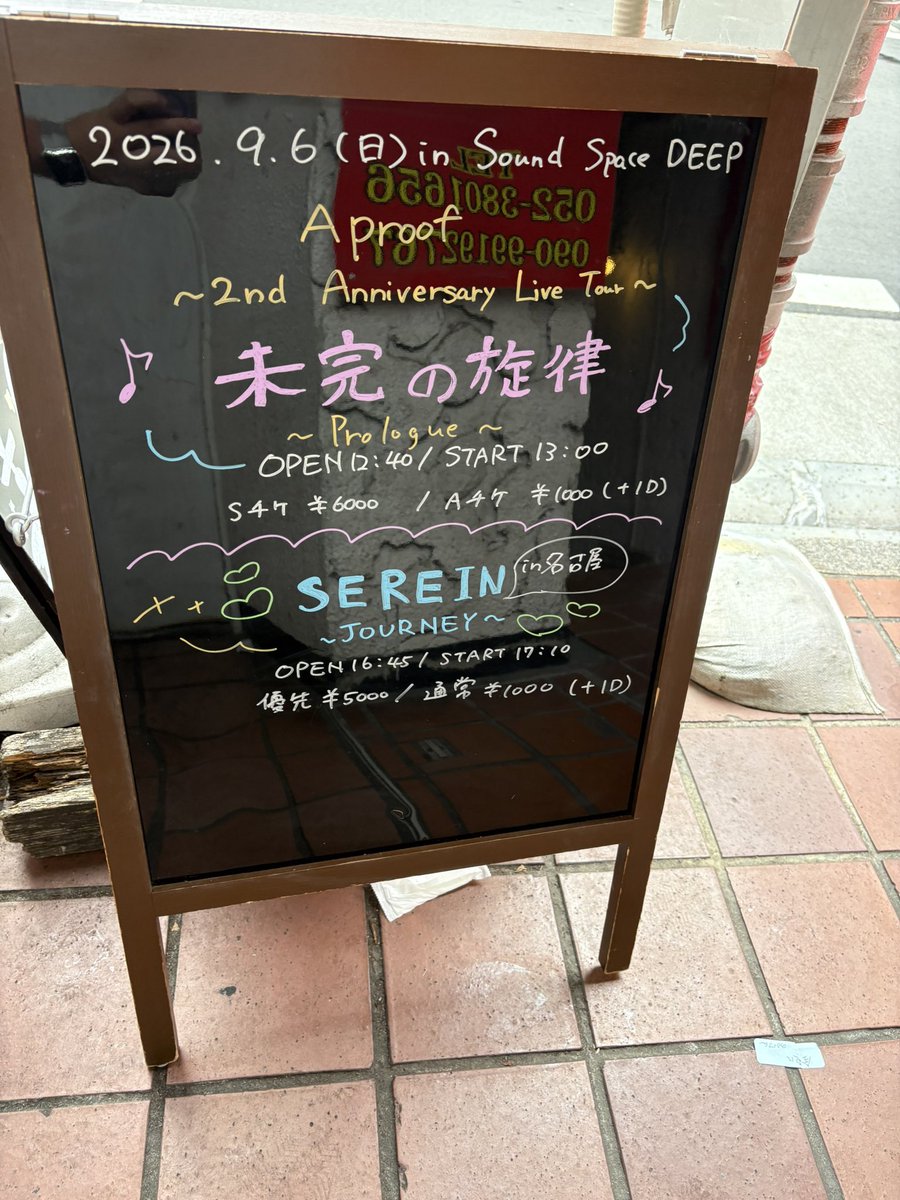 2026.9.6(日) in Sound Space DEEP
TEL
052-3801656
090-9919276
A proof
~2nd Anniversary Live Tour~
未完の旋律
~ Prologue ~
OPEN 12:40 / START 13:00
Sチケ ¥6000 / Aチケ ¥1000 (+1D)
SEREIN in名古屋
~JOURNEY~
OPEN 16:45 / START 17:10
優先 ¥5000 / 通常 ¥1000 (+1D)